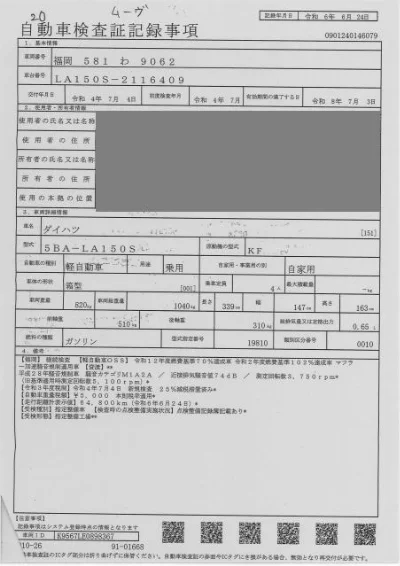 20
ムーヴ
自動車検査証記録事項
記録年月日 令和 6年 6月 24日
0901240146079
1. 基本情報
車両番号 福岡 581 わ 9062
車台番号 LA150S-2116409
交付年月日 令和 4年 7月 4日 初度検査年月 令和 4年 7月 有効期間の満了する日 令和 8年 7月 3日
2. 使用者・所有者情報
使用者の氏名又は名称
使用者の住所
所有者の氏名又は名称
所有者の住所
使用の本拠の位置
3. 車両詳細情報
車名 ダイハツ [151]
型式 5BA-LA150S 原動機の型式 KF
自動車の種別 軽自動車 用途 乗用 自家用・事業用の別 自家用
車体の形状 箱型 [001] 乗車定員 4人 最大積載量 -kg
車両重量 820kg 車両総重量 1040kg 長さ 339cm 幅 147cm 高さ 163cm
前軸重 510kg 後軸重 310kg 総排気量又は定格出力 0.65 L
燃料の種類 ガソリン 型式指定番号 19810 類別区分番号 0010
4. 備考
[福岡] 継続検査 【軽自動車OSS】 令和12年度燃費基準70%達成車
平成28年騒音規制車 騒音カテゴリM1A2A / 近接排気騒音値74dB / 測定回転数3,750rpm*
[自動車重量税額] ¥5,000 本則税率適用*
[走行距離計表示値] 54,800km (令和6年6月24日)*
[受検種別] 指定整備車 【検査時の点検整備実施状況】点検整備記録簿記載あり*
[受検形態] 指定整備工場**
【注意事項】
記録事項はシステム登録時点の情報となります
車両ID K9567LE0898367
10-26 91-01668